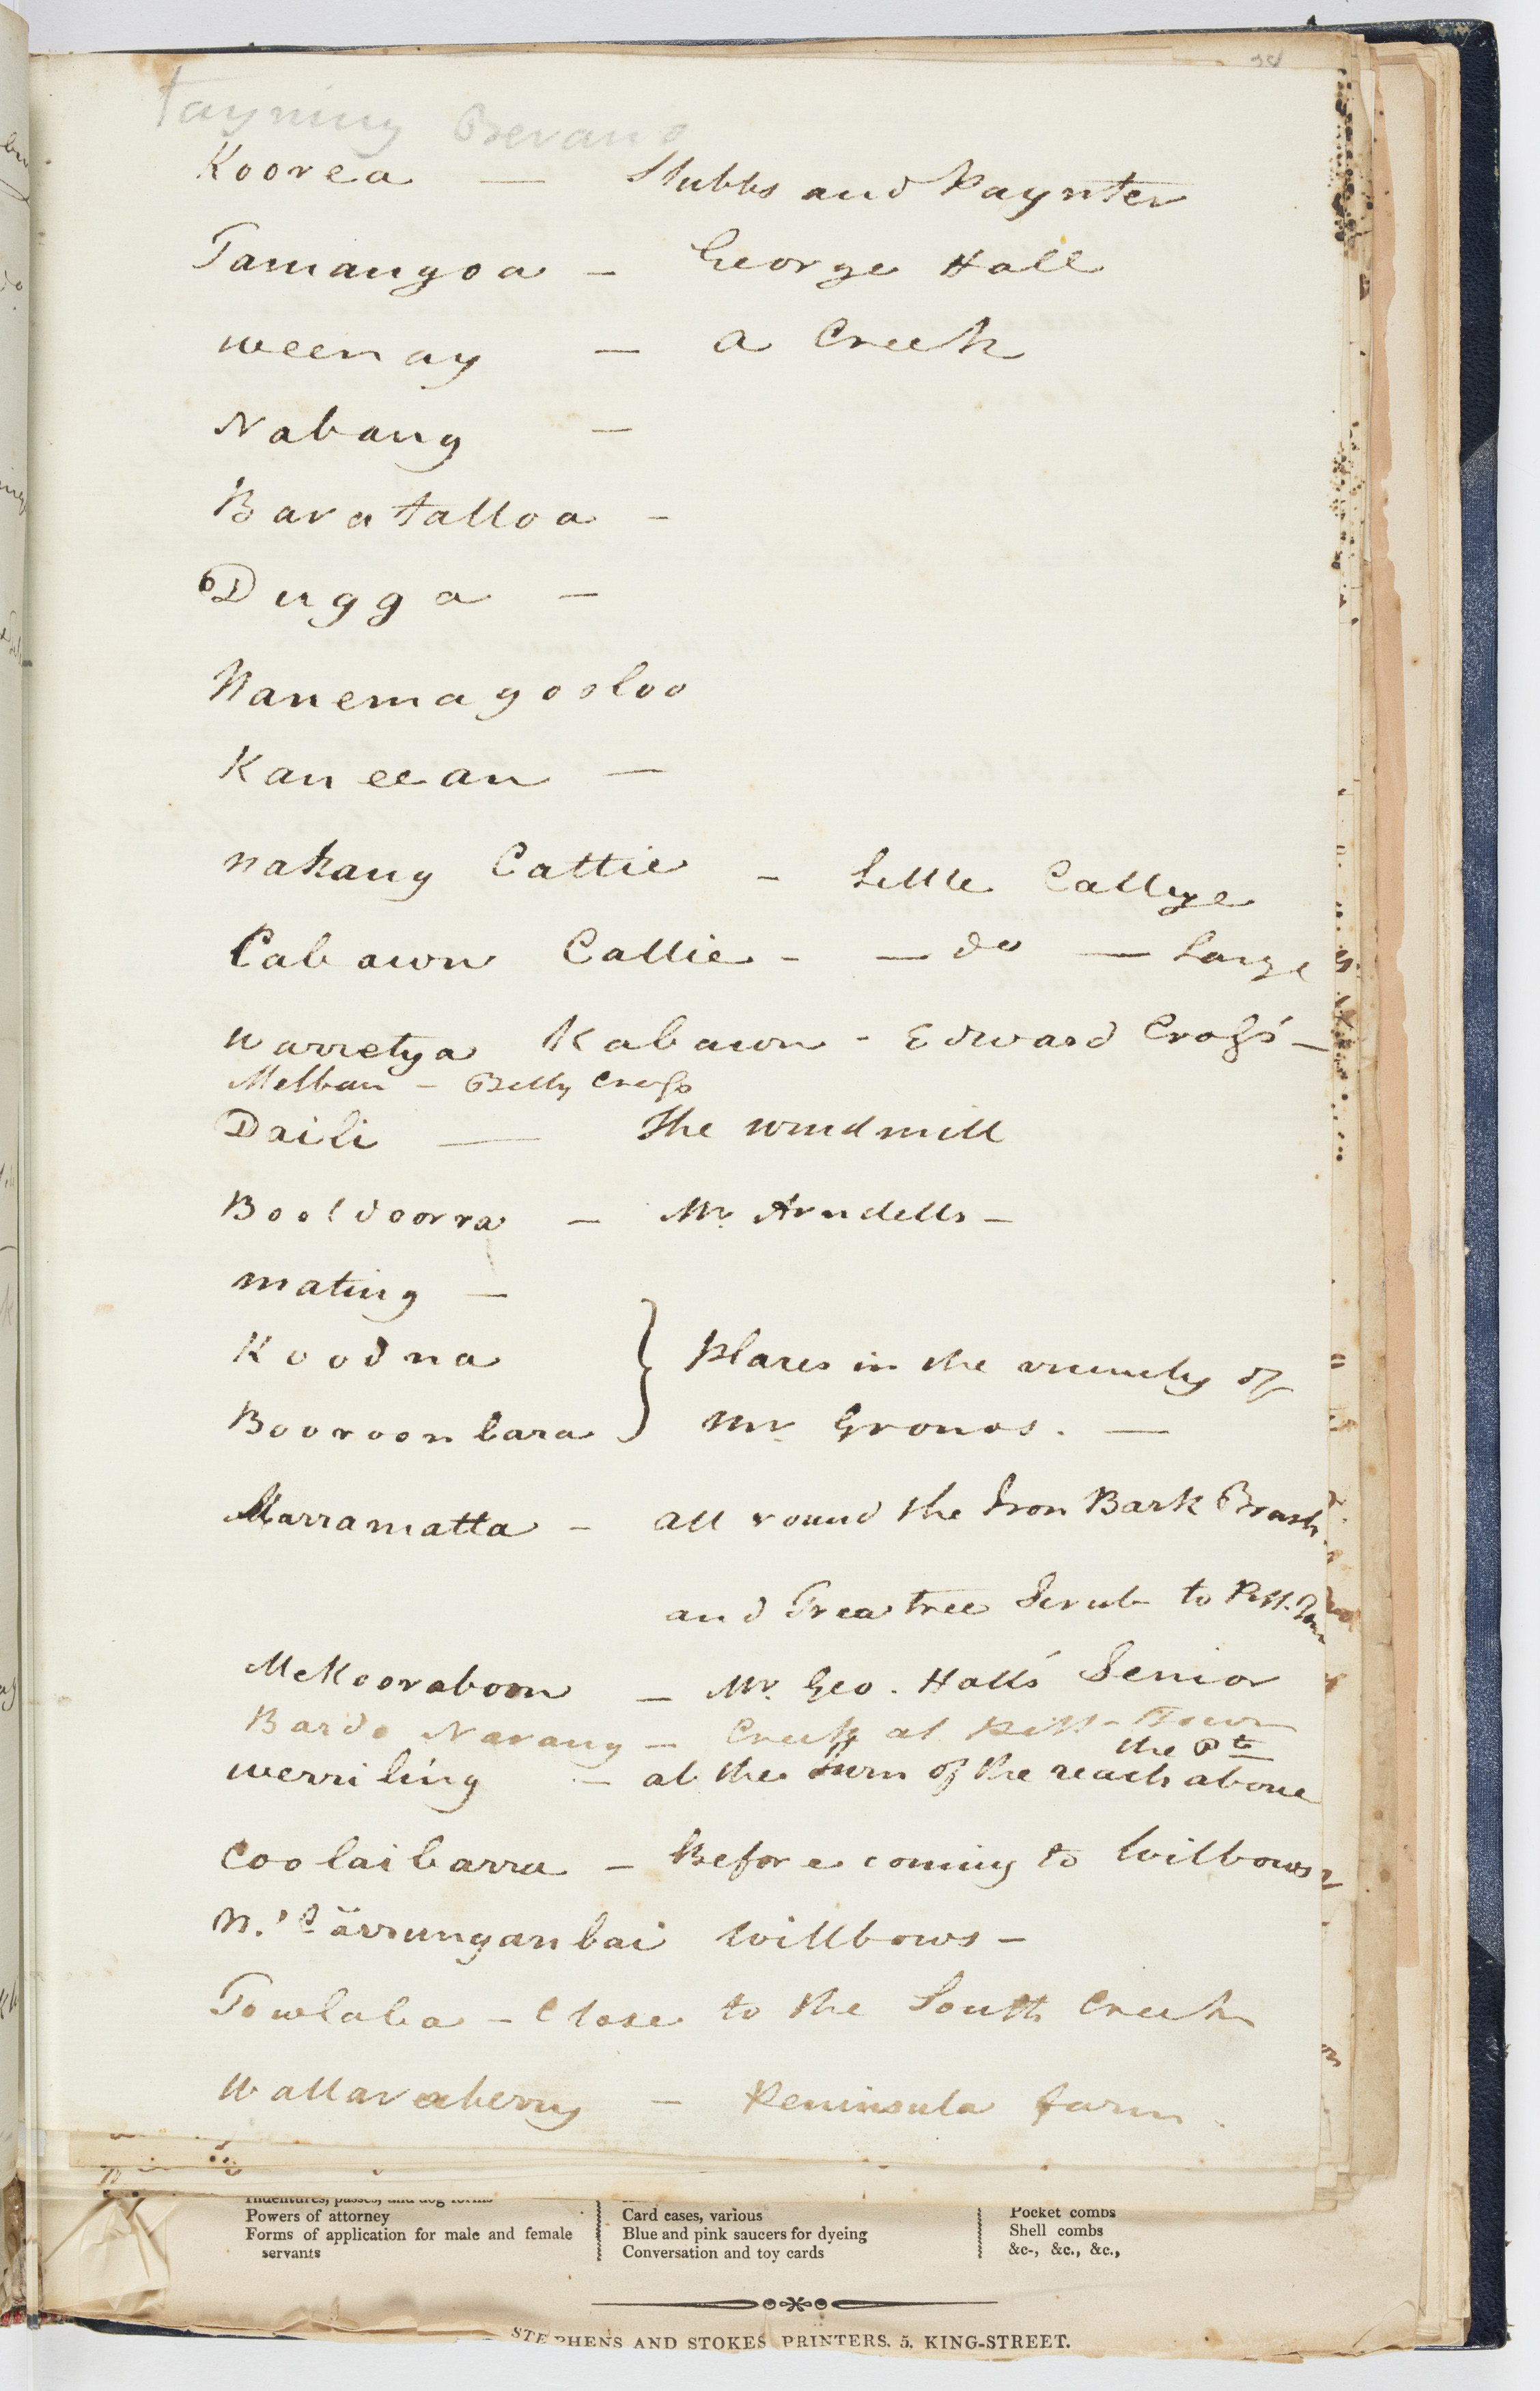 Tayning Berano
Koorea — Stubbs and Paynter
Tamangoa — George Hall
weenay — a Creek
Nabang —
Baratalloa —
Dugga —
Nanemagooloo
Kaneean —
nakang Cattie — Little Cattye
Cabawn Cattie — — do — Large
warretya Kabawn - Edward Cross's —
Melban — Betty Cross
Daili — The windmill
Booldoorra — Mr. Arndells —
mating —
Koodna } places in the vicinity of
Booroonbara } Mr Gronos. —
Marramatta — all round the Iron Bark Brush
and Trea tree Scrub to Pitt-Town
McKooraboon — Mr. Geo. Hall's Senior
Bardo Narang — Creek at Pitt-Town
the Pt
werriling — at the turn of the reach above
Coolaibarra — Before coming to Wilbows
N.' Cärrunganbai Willbows —
Towlaba — Close to the South Creek
Wallaraberry — Peninsula farm.
Indentures, passes, and dog forms
Powers of attorney
Forms of application for male and female
servants
Card cases, various
Blue and pink saucers for dyeing
Conversation and toy cards
Pocket combs
Shell combs
&c-, &c., &c.,
STEPHENS AND STOKES PRINTERS, 5, KING-STREET.